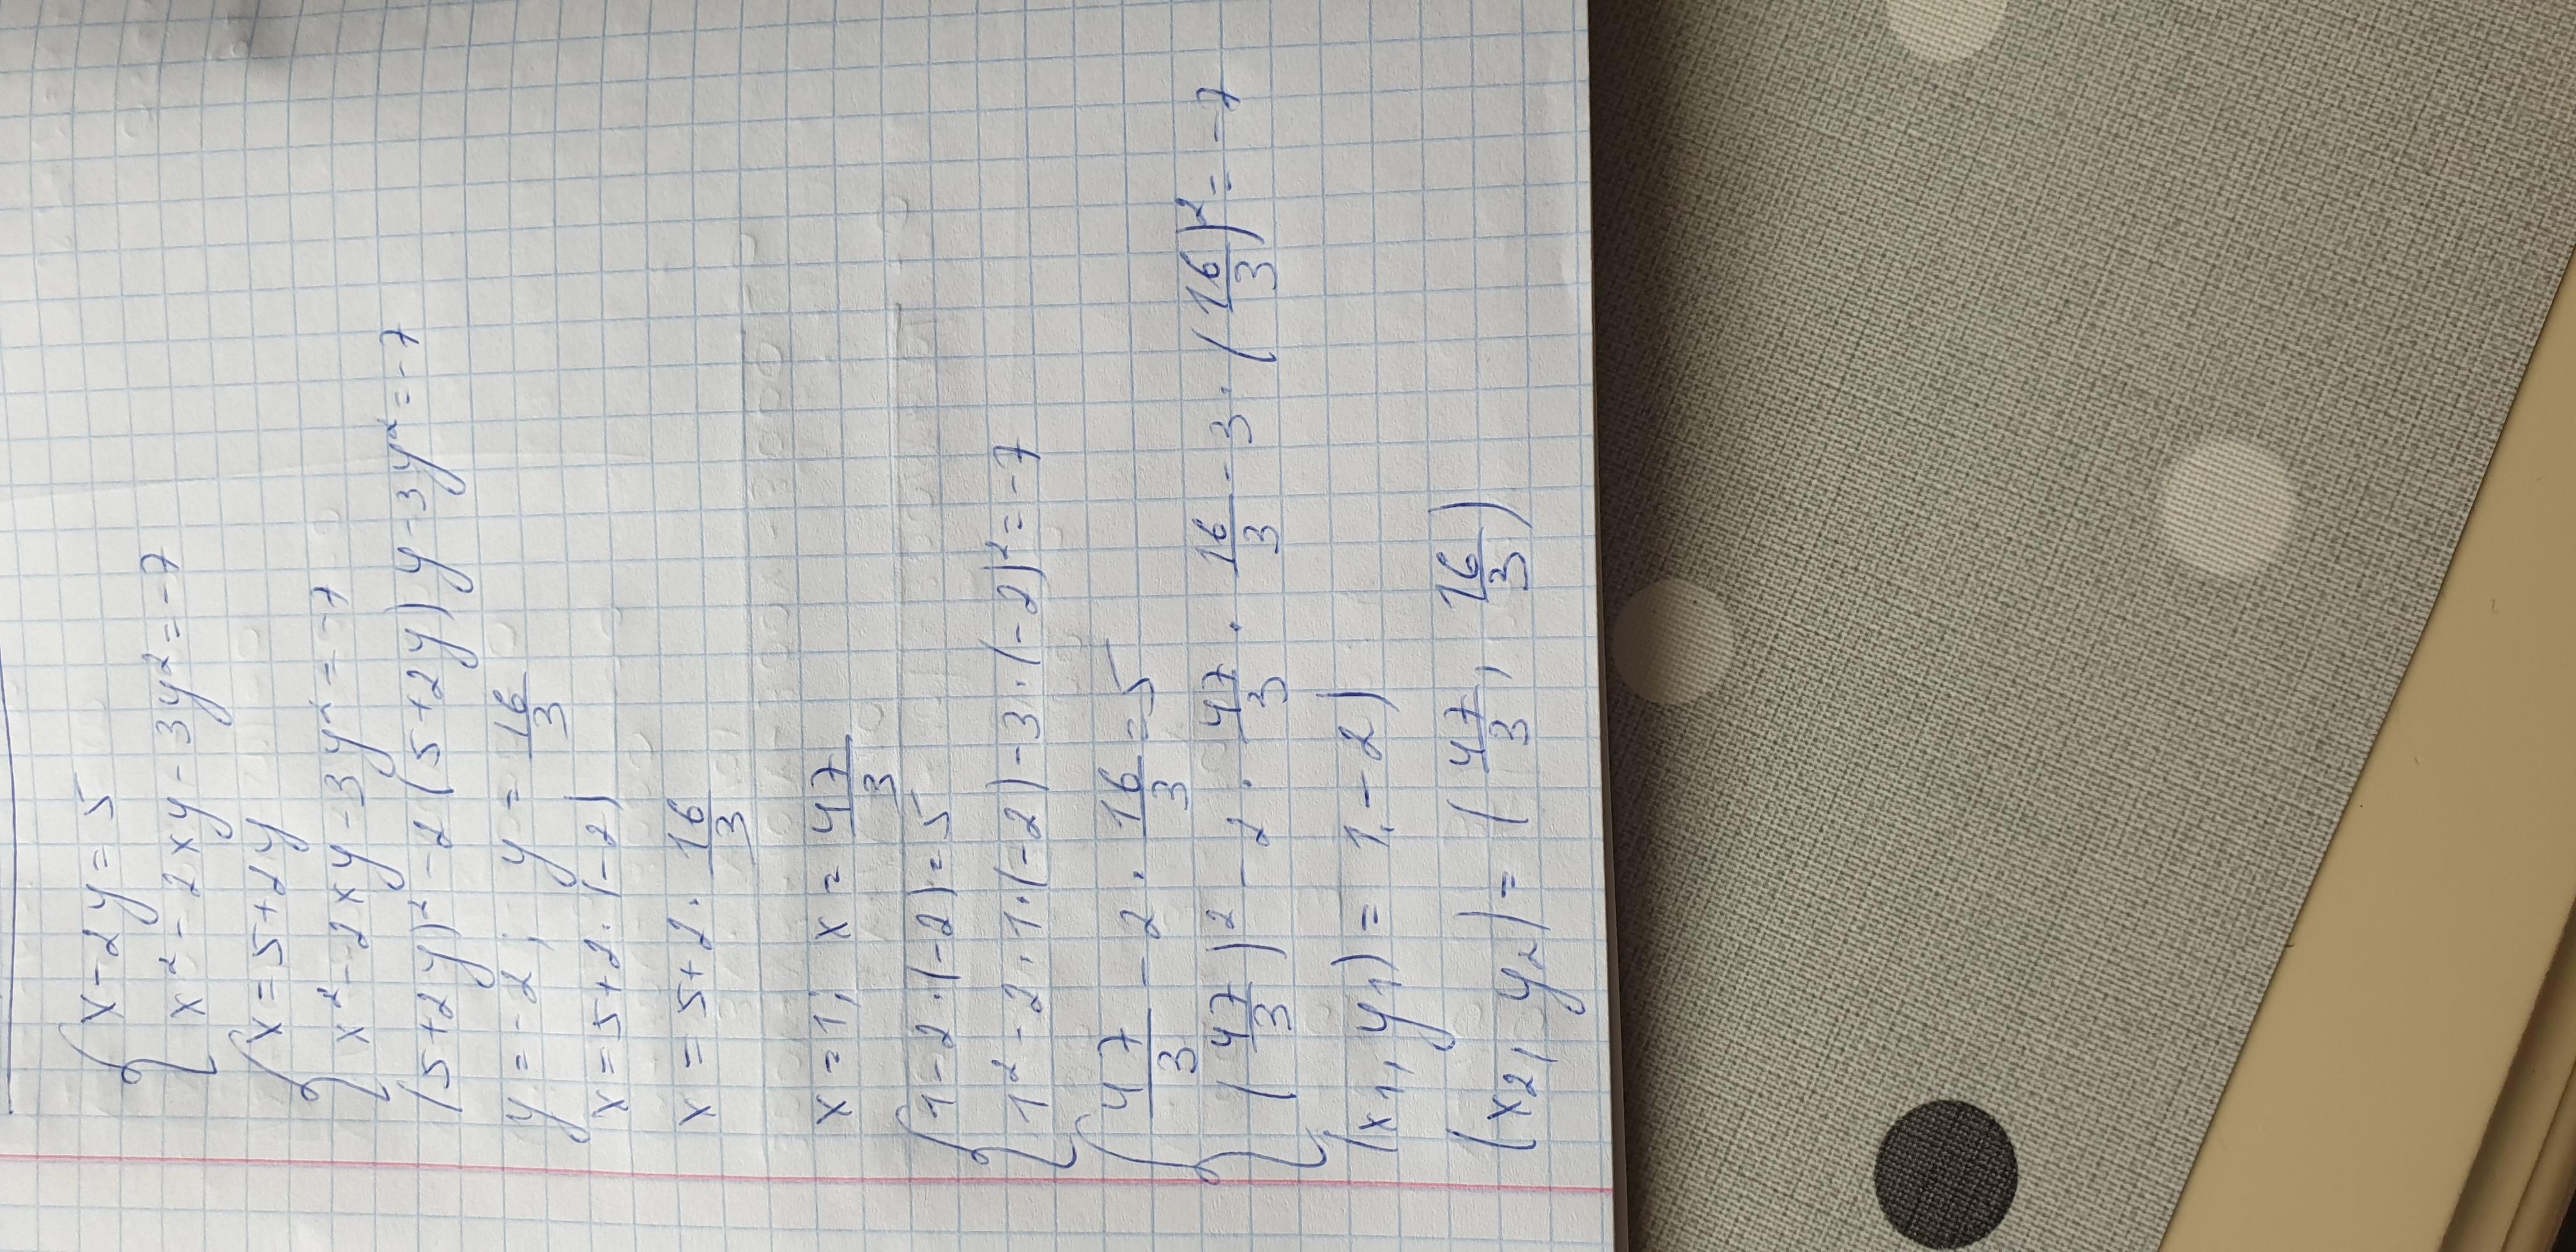 x - 2y = 5
x² - 2xy - 3y² = -7
x = 5 + 2y
x² - 2xy - 3y² = -7
(5 + 2y)² - 2(5 + 2y)y - 3y² = -7
y = -2; y = 16/3
x = 5 + 2·(-2)
x = 5 + 2·16/3
x = 1; x = 47/3
1 - 2·(-2) = 5
1² - 2·1·(-2) - 3·(-2)² = -7
47/3 - 2·16/3 = 5
(47/3)² - 2·47/3·16/3 - 3·(16/3)² = -7
(x₁, y₁) = 1, -2)
(x₂, y₂) = (47/3, 16/3)